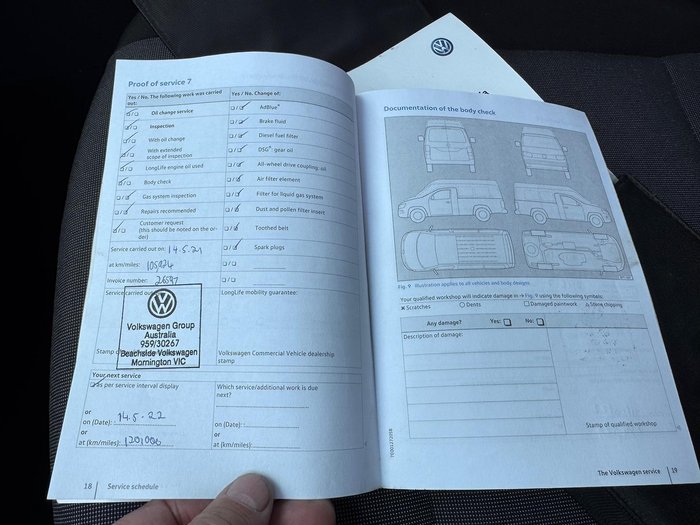 Proof of service 7
Yes / No. The following work was carried out:
☑/☐ Oil change service
☑/☐ Inspection
With oil change
☑/☐ With extended scope of inspection
LongLife engine oil used
Body check
Gas system inspection
Repairs recommended
Customer request (this should be noted on the order)
Service carried out on: 14.5.21
at km/miles: 105924
Invoice number: 26597
Service carried out
Volkswagen Group
Australia
959/30267
Beachside Volkswagen
Mornington VIC
Stamp
Your next service
as per service interval display
or
on (Date): 14.5.22
or
at (km/miles): 120,000
Yes / No. Change of:
AdBlue®
Brake fluid
Diesel fuel filter
DSG® gear oil
All-wheel drive coupling: oil
Air filter element
Filter for liquid gas system
Dust and pollen filter insert
Toothed belt
Spark plugs
LongLife mobility guarantee:
Volkswagen Commercial Vehicle dealership stamp
Which service/additional work is due next?
on (Date):
or
at (km/miles):
18 | Service schedule
Documentation of the body check
Fig. 9 Illustration applies to all vehicles and body designs.
Your qualified workshop will indicate damage in → Fig. 9 using the following symbols:
× Scratches ○ Dents □ Damaged paintwork △ Stone chipping
Any damage? Yes: ☐ No: ☐
Description of damage:
Stamp of qualified workshop
The Volkswagen service | 19